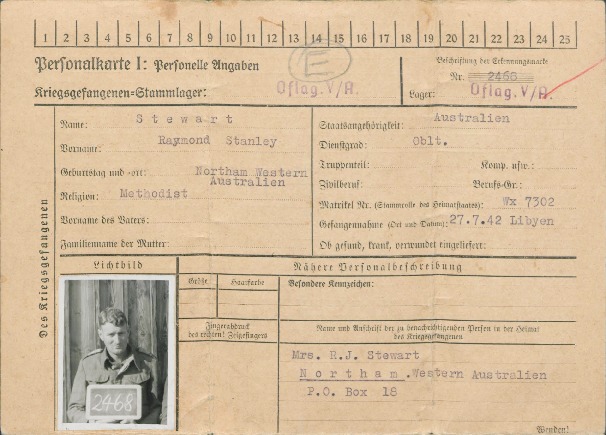 1 2 3 4 5 6 7 8 9 10 11 12 13 14 15 16 17 18 19 20 21 22 23 24 25
Personalkarte I: Personelle Angaben
E
Beschriftung der Erkennungsmarke
Nr. 2468
Kriegsgefangenen=Stammlager: Oflag.V/A.
Lager: Oflag.V/A.
Des Kriegsgefangenen
Name: Stewart
Staatsangehörigkeit: Australien
Vorname: Raymond Stanley
Dienstgrad: Oblt.
Truppenteil: Komp. usw.:
Geburtstag und =ort: Northam Western Australien
Zivilberuf: Berufs-Gr.:
Religion: Methodist
Matrikel Nr. (Stammrolle des Heimatstaates): Wx 7302
Vorname des Vaters:
Gefangennahme (Ort und Datum): 27.7.42 Libyen
Familienname der Mutter:
Ob gesund, krank, verwundet eingeliefert:
Lichtbild
Nähere Personalbeschreibung
Größe Haarfarbe
Besondere Kennzeichen:
Fingerabdruck
des rechten! Zeigefingers
Name und Anschrift der zu benachrichtigenden Person in der Heimat
des Kriegsgefangenen
Mrs. R.J. Stewart
Northam.Western Australien
P.O. Box 18
2468
Wenden!